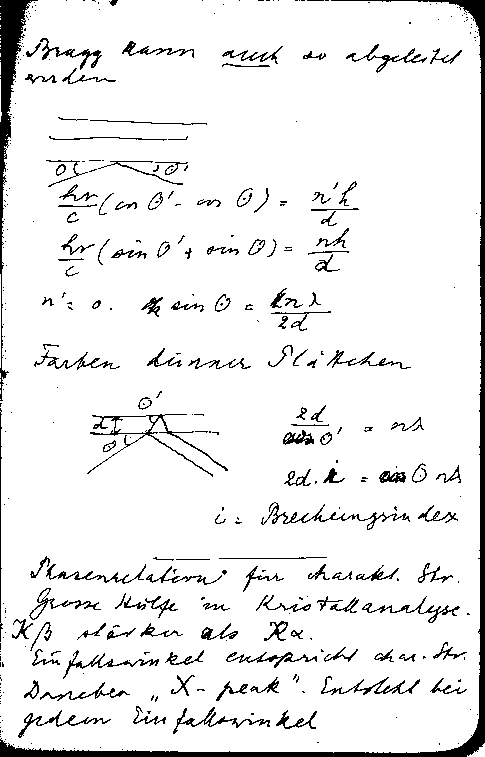 Bragg kann auch so abgeleitet
werden
θ θ'
hν/c (cos θ' - cos θ) = n'h/d
hν/c (sin θ' + sin θ) = nh/d
n' = 0. sin θ = nλ/2d
Farben dünner Plättchen
θ'
d
θ
2d/ θ' = nλ
2d. = θ nλ
i = Brechungsindex
Phasenrelation für charakt. Str.
Grosse Hülfe in Kristallanalyse.
Kβ stärker als Kα.
Einfallswinkel entspricht char. Str.
Daneben „X-peak". Entsteht bei
jedem Einfallswinkel